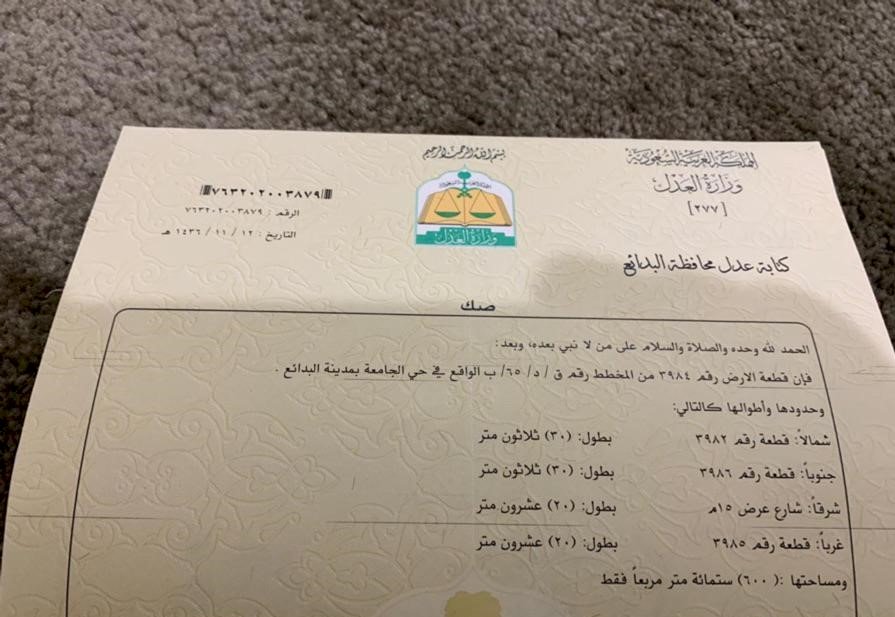 بسم الله الرحمن الرحيم
المملكة العربية السعودية
وزارة العدل
[٢٧٧]
كتابة عدل محافظة البدائع
٧٦٣٢٠٢٠٠٣٨٧٩
الرقم : ٧٦٣٢٠٢٠٠٣٨٧٩
التاريخ : ١٢ / ١١ / ١٤٣٦ هـ
وزارة العدل
صك
الحمد لله وحده والصلاة والسلام على من لا نبي بعده، وبعد:
فإن قطعة الارض رقم ٣٩٨٤ من المخطط رقم ق / د / ٦٥/ ب الواقع في حي الجامعة بمدينة البدائع .
وحدودها وأطوالها كالتالي:
شمالاً: قطعة رقم ٣٩٨٢ بطول: (٣٠) ثلاثون متر
جنوباً: قطعة رقم ٣٩٨٦ بطول: (٣٠) ثلاثون متر
شرقاً: شارع عرض ١٥م بطول: (٢٠) عشرون متر
غرباً: قطعة رقم ٣٩٨٥ بطول: (٢٠) عشرون متر
ومساحتها :( ٦٠٠) ستمائة متر مربعاً فقط